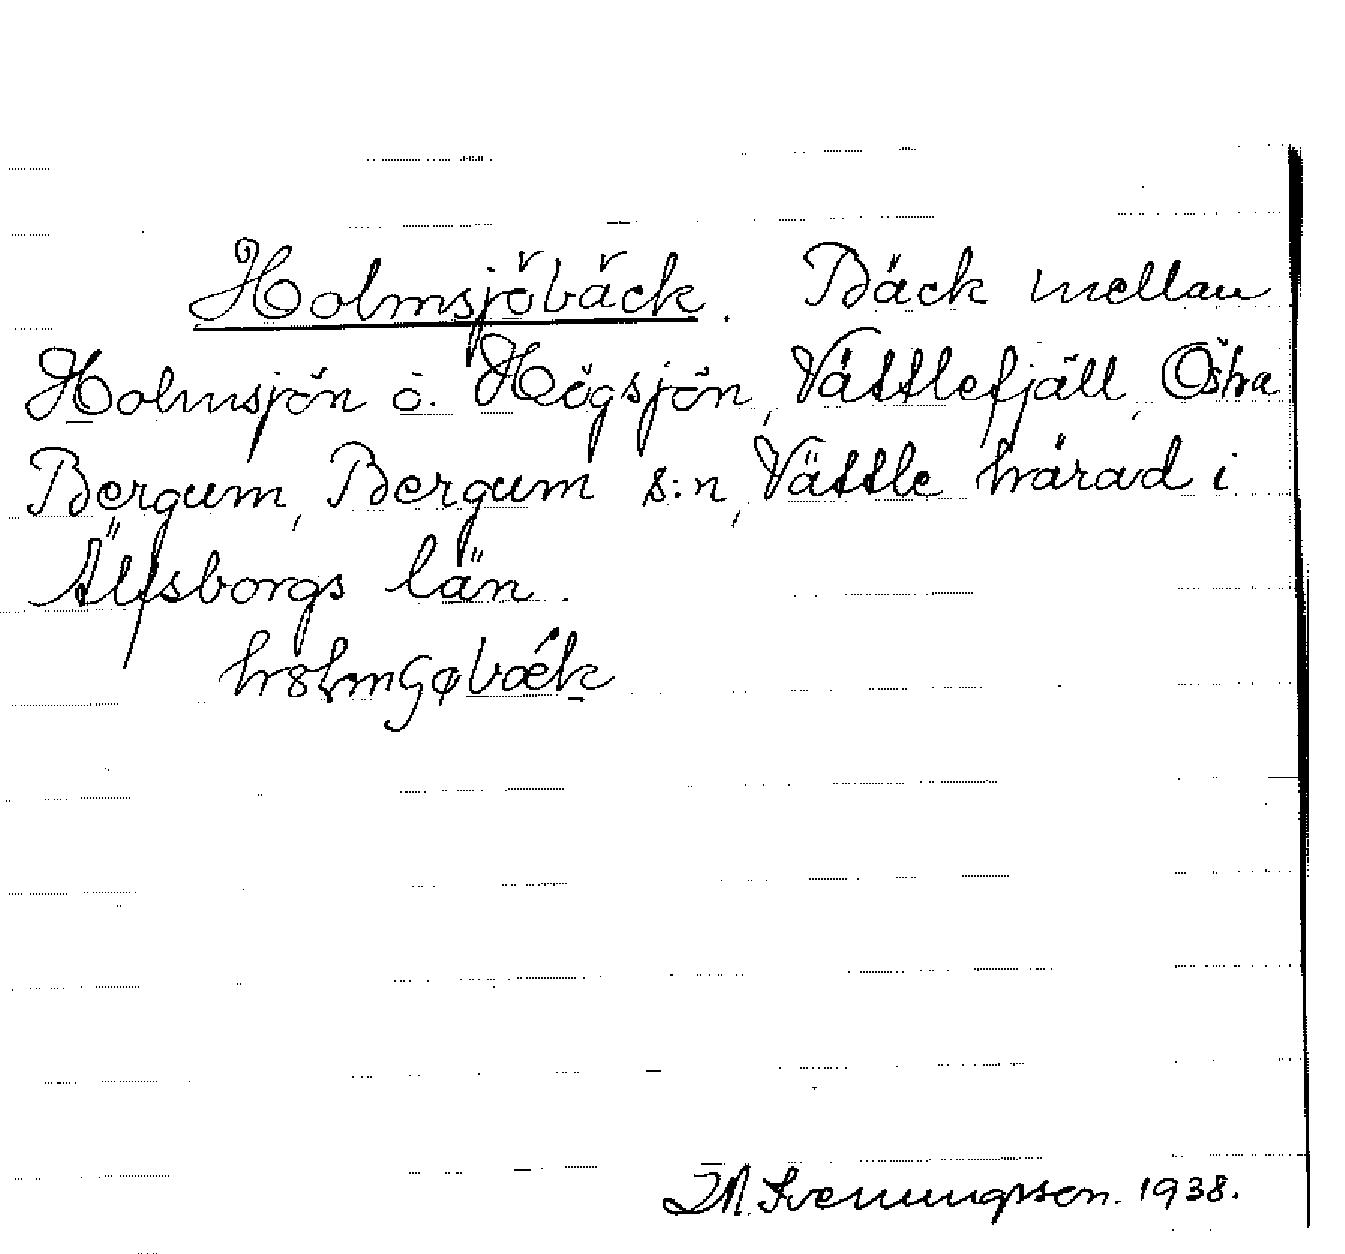 Holmsjöbäck. Bäck mellan
Holmsjön o. Högsjön, Vättlefjäll, Östra
Bergum, Bergum s:n, Vättle härad i
Älfsborgs län.
Svenungsson. 1938.